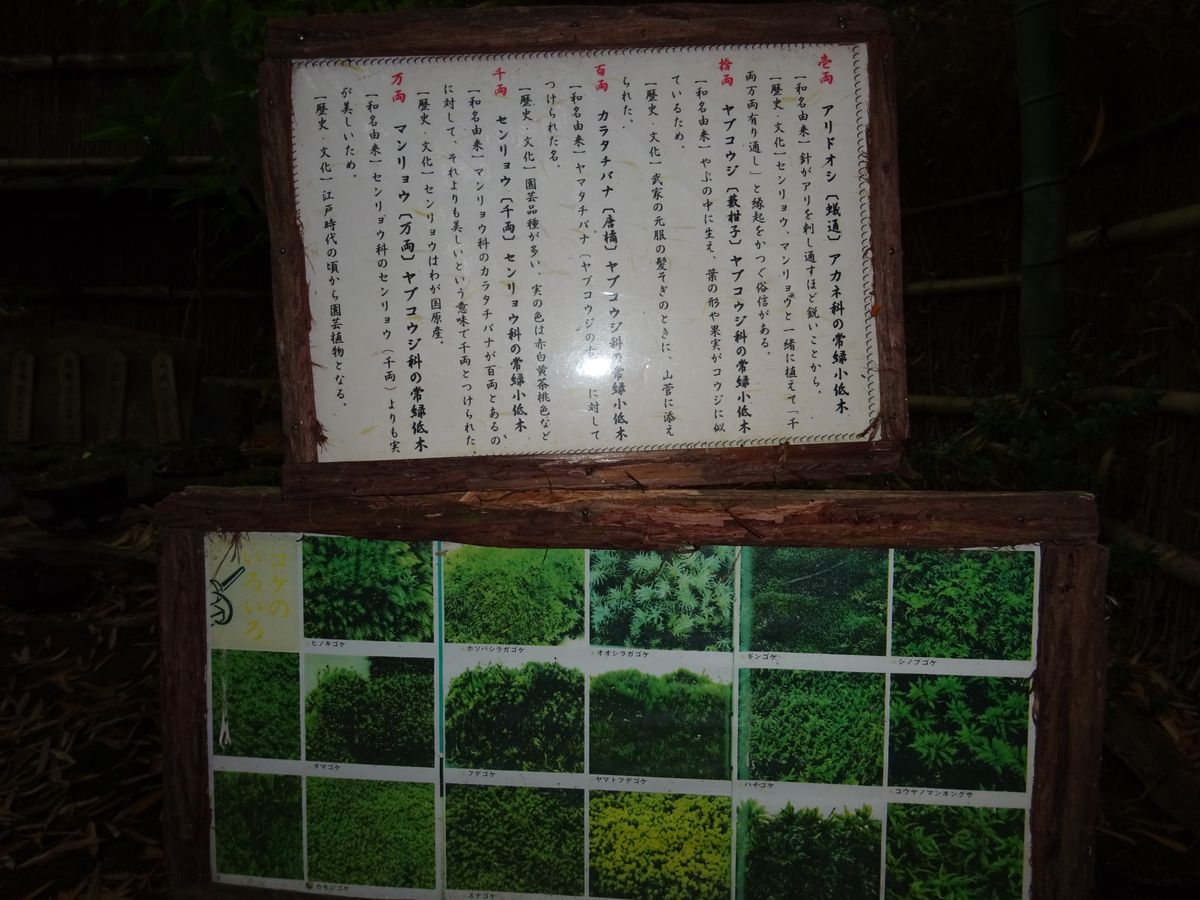 壱両 アリドオシ〔蟻通〕アカネ科の常緑小低木
［和名由来］針がアリを刺し通すほど鋭いことから。
［歴史・文化］センリョウ、マンリョウと一緒に植えて「千
両万両有り通し」と縁起をかつぐ俗信がある。
拾両 ヤブコウジ〔藪柑子〕ヤブコウジ科の常緑小低木
［和名由来］やぶの中に生え、葉の形や果実がコウジに似
ているため。
［歴史・文化］武家の元服の髪そぎのときに、山菅に添え
られた。
百両 カラタチバナ〔唐橘〕ヤブコウジ科の常緑小低木
［和名由来］ヤマタチバナ（ヤブコウジの古 に対して
つけられた名。
［歴史・文化］園芸品種が多い、実の色は赤白黄茶桃色など
千両 センリョウ〔千両〕センリョウ科の常緑小低木
［和名由来］マンリョウ科のカラタチバナが百両とあるの
に対して、それよりも美しいという意味で千両とつけられた。
［歴史・文化］センリョウはわが国原産。
万両 マンリョウ〔万両〕ヤブコウジ科の常緑小低木
［和名由来］センリョウ科のセンリョウ（千両）よりも実
が美しいため。
［歴史・文化］江戸時代の頃から園芸植物となる。
コケの
いろいろ
ヒノキゴケ
ホソバシラガゴケ
オオシラガゴケ
ギンゴケ
シノブゴケ
タマゴケ
フデゴケ
ヤマトフデゴケ
ハイゴケ
コウヤノマンネングサ
カモジゴケ
スナゴケ